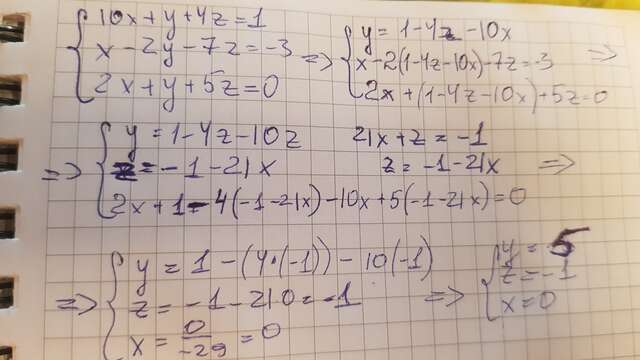 { 10x+y+4z=1
x-2y-7z=-3 =>
2x+y+5z=0
{ y=1-4z-10x
x-2(1-4z-10x)-7z=-3 =>
2x+(1-4z-10x)+5z=0
=> { y=1-4z-10z
z=-1-21x
2x+1-4(-1-21x)-10x+5(-1-21x)=0
21x+z=-1
z=-1-21x =>
=> { y=1-(4·(-1))-10(-1)
z=-1-210=-1 =>
x=0/-29=0
{ y=5
z=-1
x=0